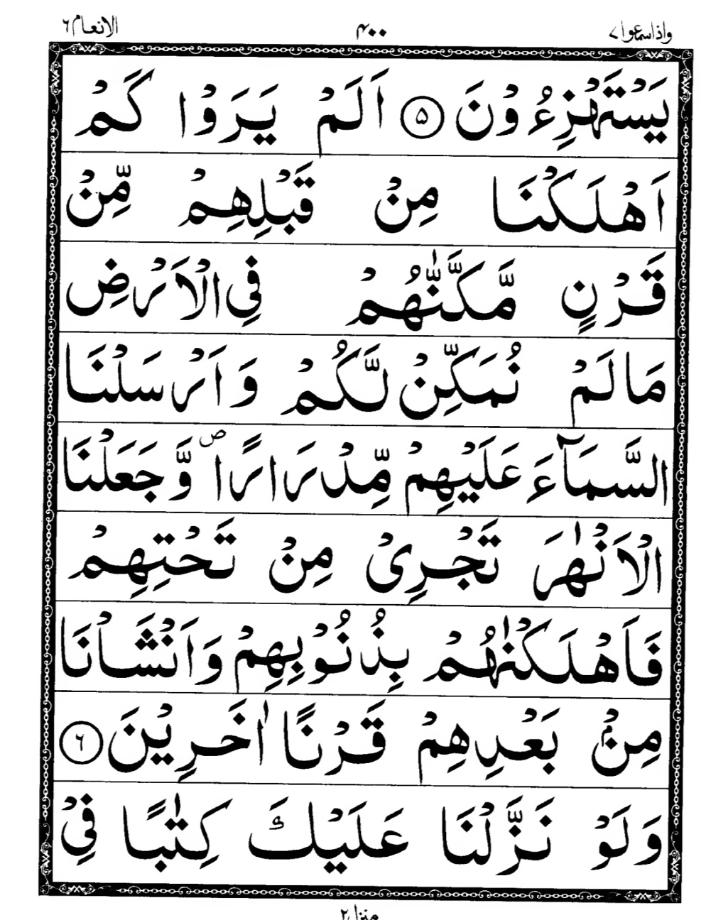 واذاسمعوا ٧ ۴۰۰ الانعام ٦
يَسْتَهْزِءُوْنَ ۵ اَلَمْ يَرَوْا كَمْ
اَهْلَكْنَا مِنْ قَبْلِهِمْ مِّنْ
قَرْنٍ مَّكَّنّٰهُمْ فِي الْاَرْضِ
مَا لَمْ نُمَكِّنْ لَّكُمْ وَاَرْسَلْنَا
السَّمَآءَ عَلَيْهِمْ مِّدْرَارًا ۖ وَّجَعَلْنَا
الْاَنْهٰرَ تَجْرِيْ مِنْ تَحْتِهِمْ
فَاَهْلَكْنٰهُمْ بِذُنُوْبِهِمْ وَاَنْشَاْنَا
مِنْۢ بَعْدِهِمْ قَرْنًا اٰخَرِيْنَ ٦
وَلَوْ نَزَّلْنَا عَلَيْكَ كِتٰبًا فِيْ
منزل ٢